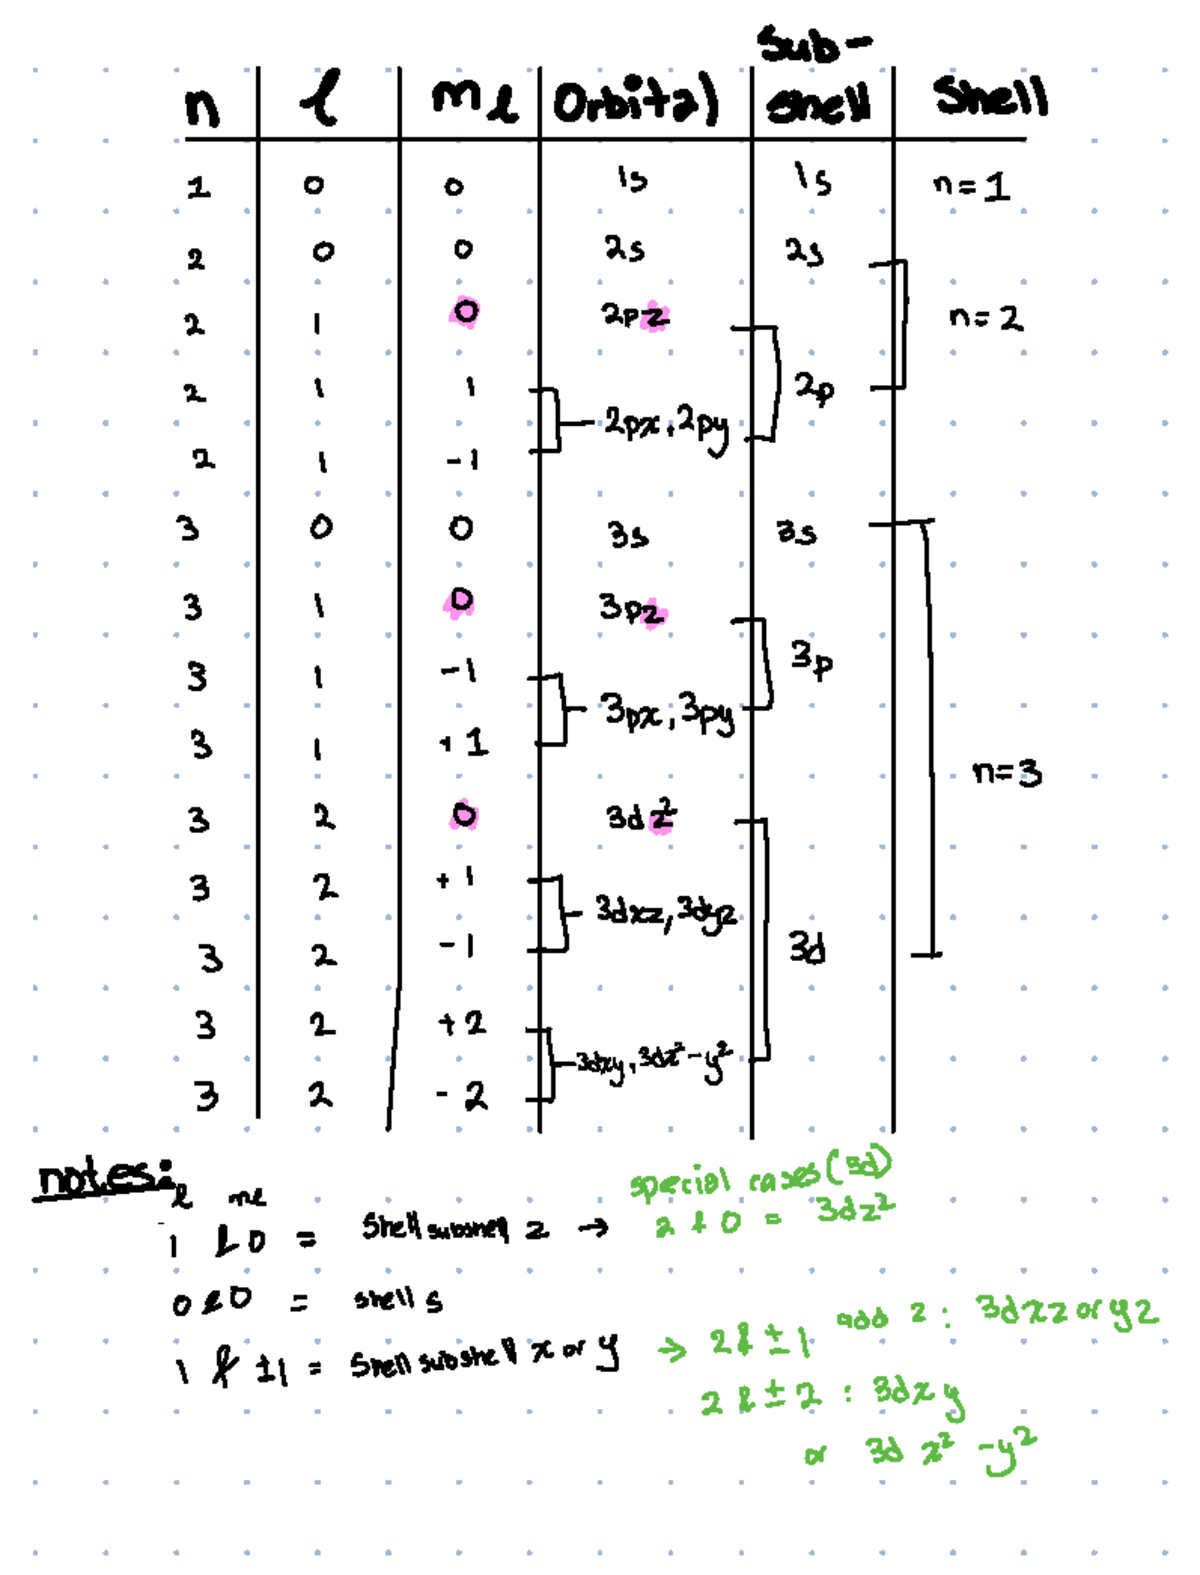 n l ml Orbital Sub-shell Shell
1 0 0 1s 1s n=1
2 0 0 2s 2s
2 1 0 2pz n=2
2 1 1 2p
2px, 2py
2 1 -1
3 0 0 3s 3s
3 1 0 3pz
3p
3 1 -1
3px, 3py
3 1 +1
n=3
3 2 0 3dz²
3 2 +1
3dxz, 3dyz
3 2 -1 3d
3 2 +2
3dxy, 3dx²-y²
3 2 -2
notes:
l ml
special cases (3d)
1 & 0 = Shell subshell z → 2 & 0 = 3dz²
0 & 0 = shell s
1 & ±1 = Shell subshell x or y → 2 & ±1 add z: 3dxz or yz
2 & ±2 : 3dxy
or 3d x²-y²